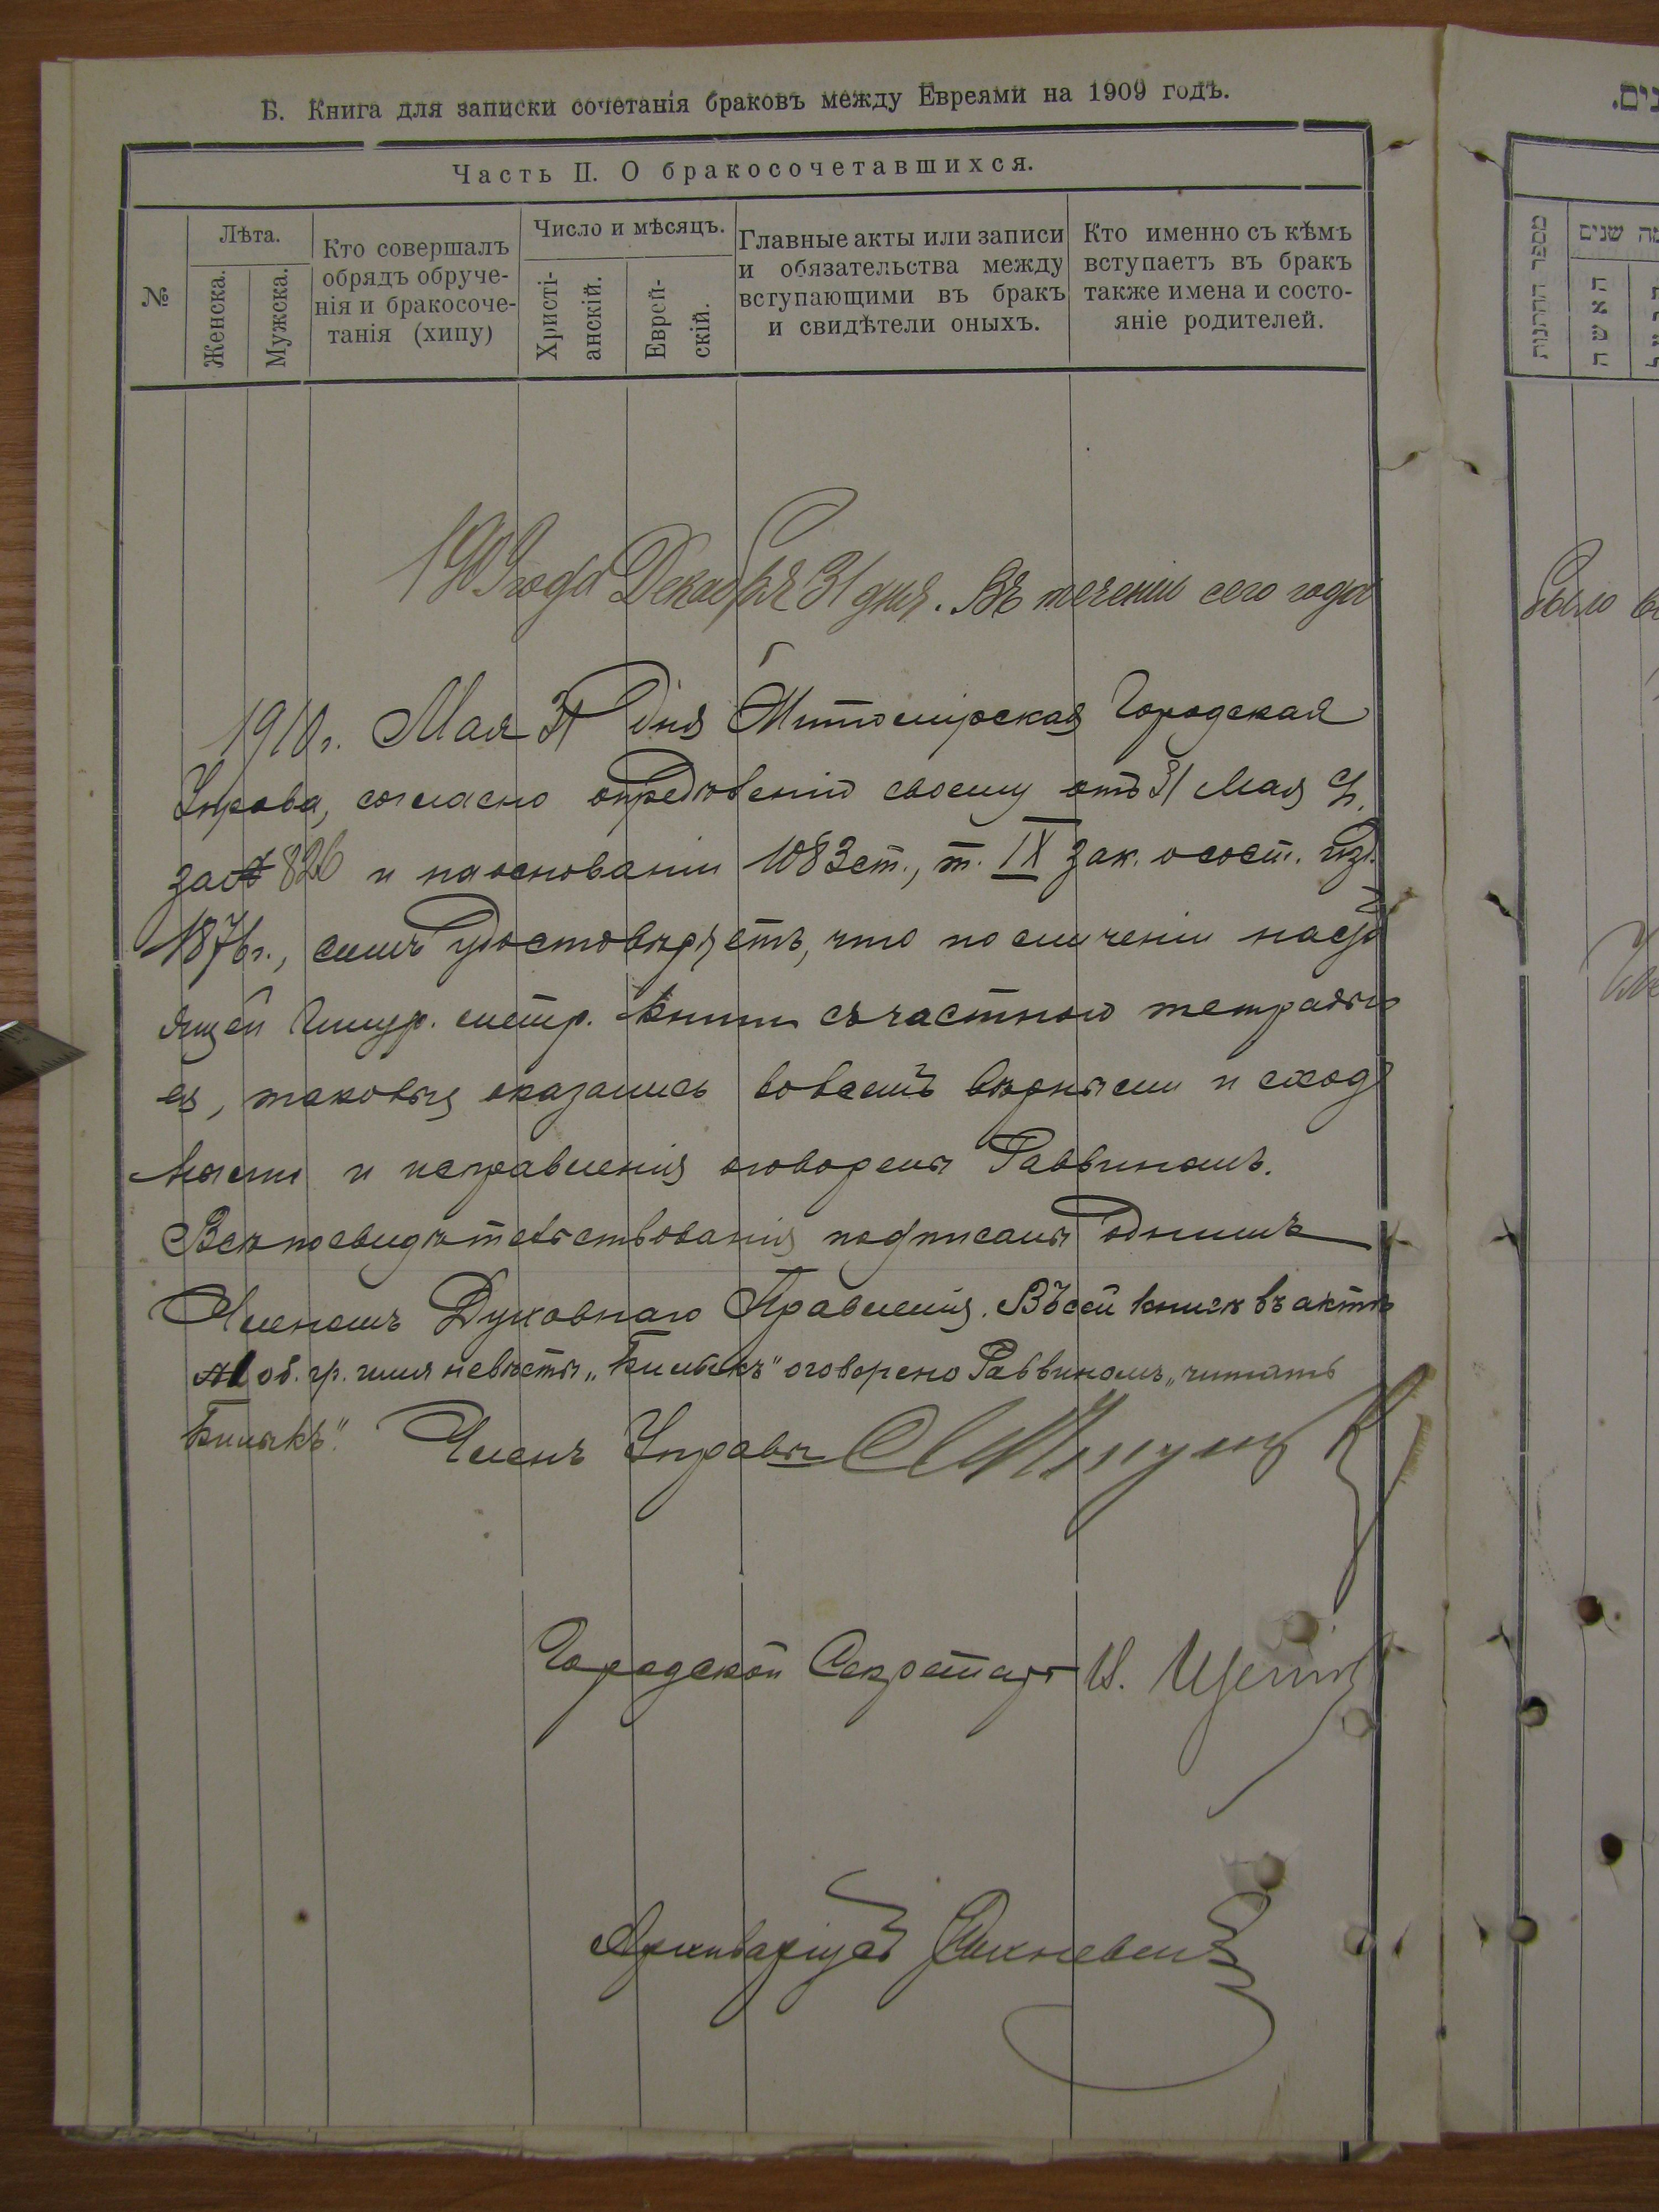 Б. Книга для записки сочетанія браковъ между Евреями на 1909 годъ.
Часть II. О бракосочетавшихся.
№
Лѣта.
Женска.
Мужска.
Кто совершалъ
обрядъ обруче-
нія и бракосоче-
танія (хипу)
Число и мѣсяцъ.
Христі-
анскій.
Еврей-
скій.
Главные акты или записи
и обязательства между
вступающими въ бракъ
и свидѣтели оныхъ.
Кто именно съ кѣмъ
вступаетъ въ бракъ
также имена и состо-
яніе родителей.
1909 года Декабря 31 дня. Въ теченіи сего года
1910 г. Мая 31 дня Житомірская Городская
Управа, согласно опредѣленію своему отъ 31 Мая
за № 826 и на основаніи 1083 ст., т. IX зак. о сост. изд.
1876 г., симъ удостовѣряетъ, что по сличеніи насто
ящей шнур. метр. книги съ частною тетрадью
ея, таковыя оказались во всемъ вѣрными и сход
ными и исправленія оговорены Раввиномъ.
Всѣ посвидѣтельствованія подписаны однимъ
Членомъ Духовнаго Правленія. Въ сей книгѣ въ актѣ
№ 1 об. гр. имя невѣсты „ оговорено Раввиномъ „читать
Членъ Управы
Городской Секретарь И.
Архиваріусъ
נים.
מספר החתונות
שנים
האשה
было